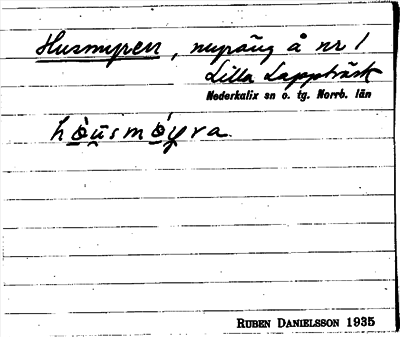 Husmyren, myräng å nr 1
Lilla Lappträsk
Nederkalix sn o. tg. Norrb. län
hö̀ṳsmö́y̭ra
RUBEN DANIELSSON 1935